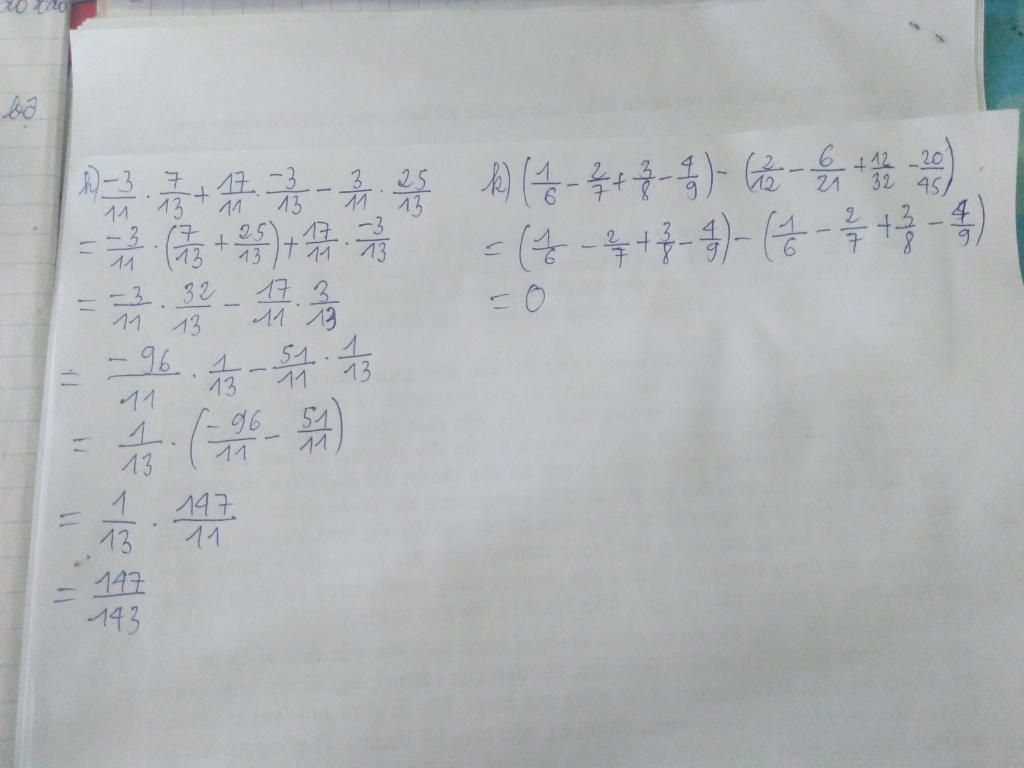 b)
h) -3/11 . 7/13 + 17/11 . -3/13 - 3/11 . 25/13
= -3/11 . (7/13 + 25/13) + 17/11 . -3/13
= -3/11 . 32/13 - 17/11 . 3/13
= -96/11 . 1/13 - 51/11 . 1/13
= 1/13 . (-96/11 - 51/11)
= 1/13 . 147/11
= 147/143
k) (1/6 - 2/7 + 3/8 - 4/9) - (2/12 - 6/21 + 12/32 - 20/45)
= (1/6 - 2/7 + 3/8 - 4/9) - (1/6 - 2/7 + 3/8 - 4/9)
= 0